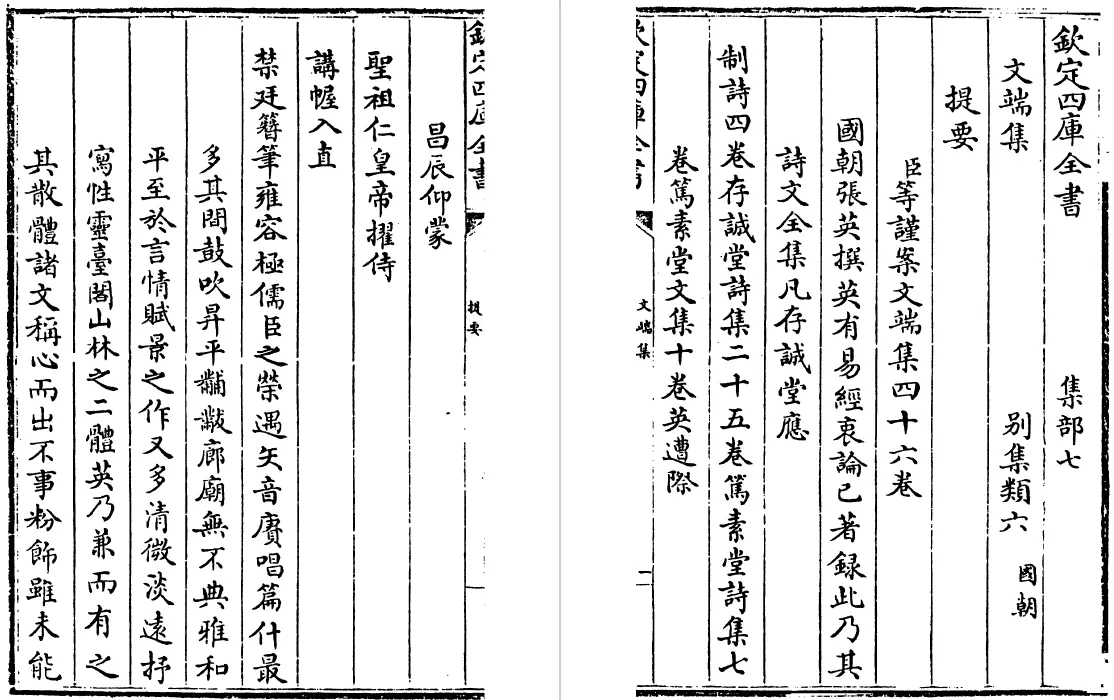 欽定四庫全書 集部七
文端集 別集類六 國朝
提要
臣等謹案文端集四十六卷
國朝張英撰英有易經衷論已著録此乃其
詩文全集凡存誠堂應
制詩四卷存誠堂詩集二十五卷篤素堂詩集七
卷篤素堂文集十卷英遭際
欽定四庫全書 文端集 一
欽定四庫全書 提要
昌辰仰蒙
聖祖仁皇帝擢侍
講幄入直
禁廷簪筆雍容極儒臣之榮遇矢音賡唱篇什最
多其間鼓吹昇平黼黻廊廟無不典雅和
平至於言情賦景之作又多清微淡遠抒
寫性靈臺閣山林之二體英乃兼而有之
其散體諸文稱心而出不事粉飾雖未能